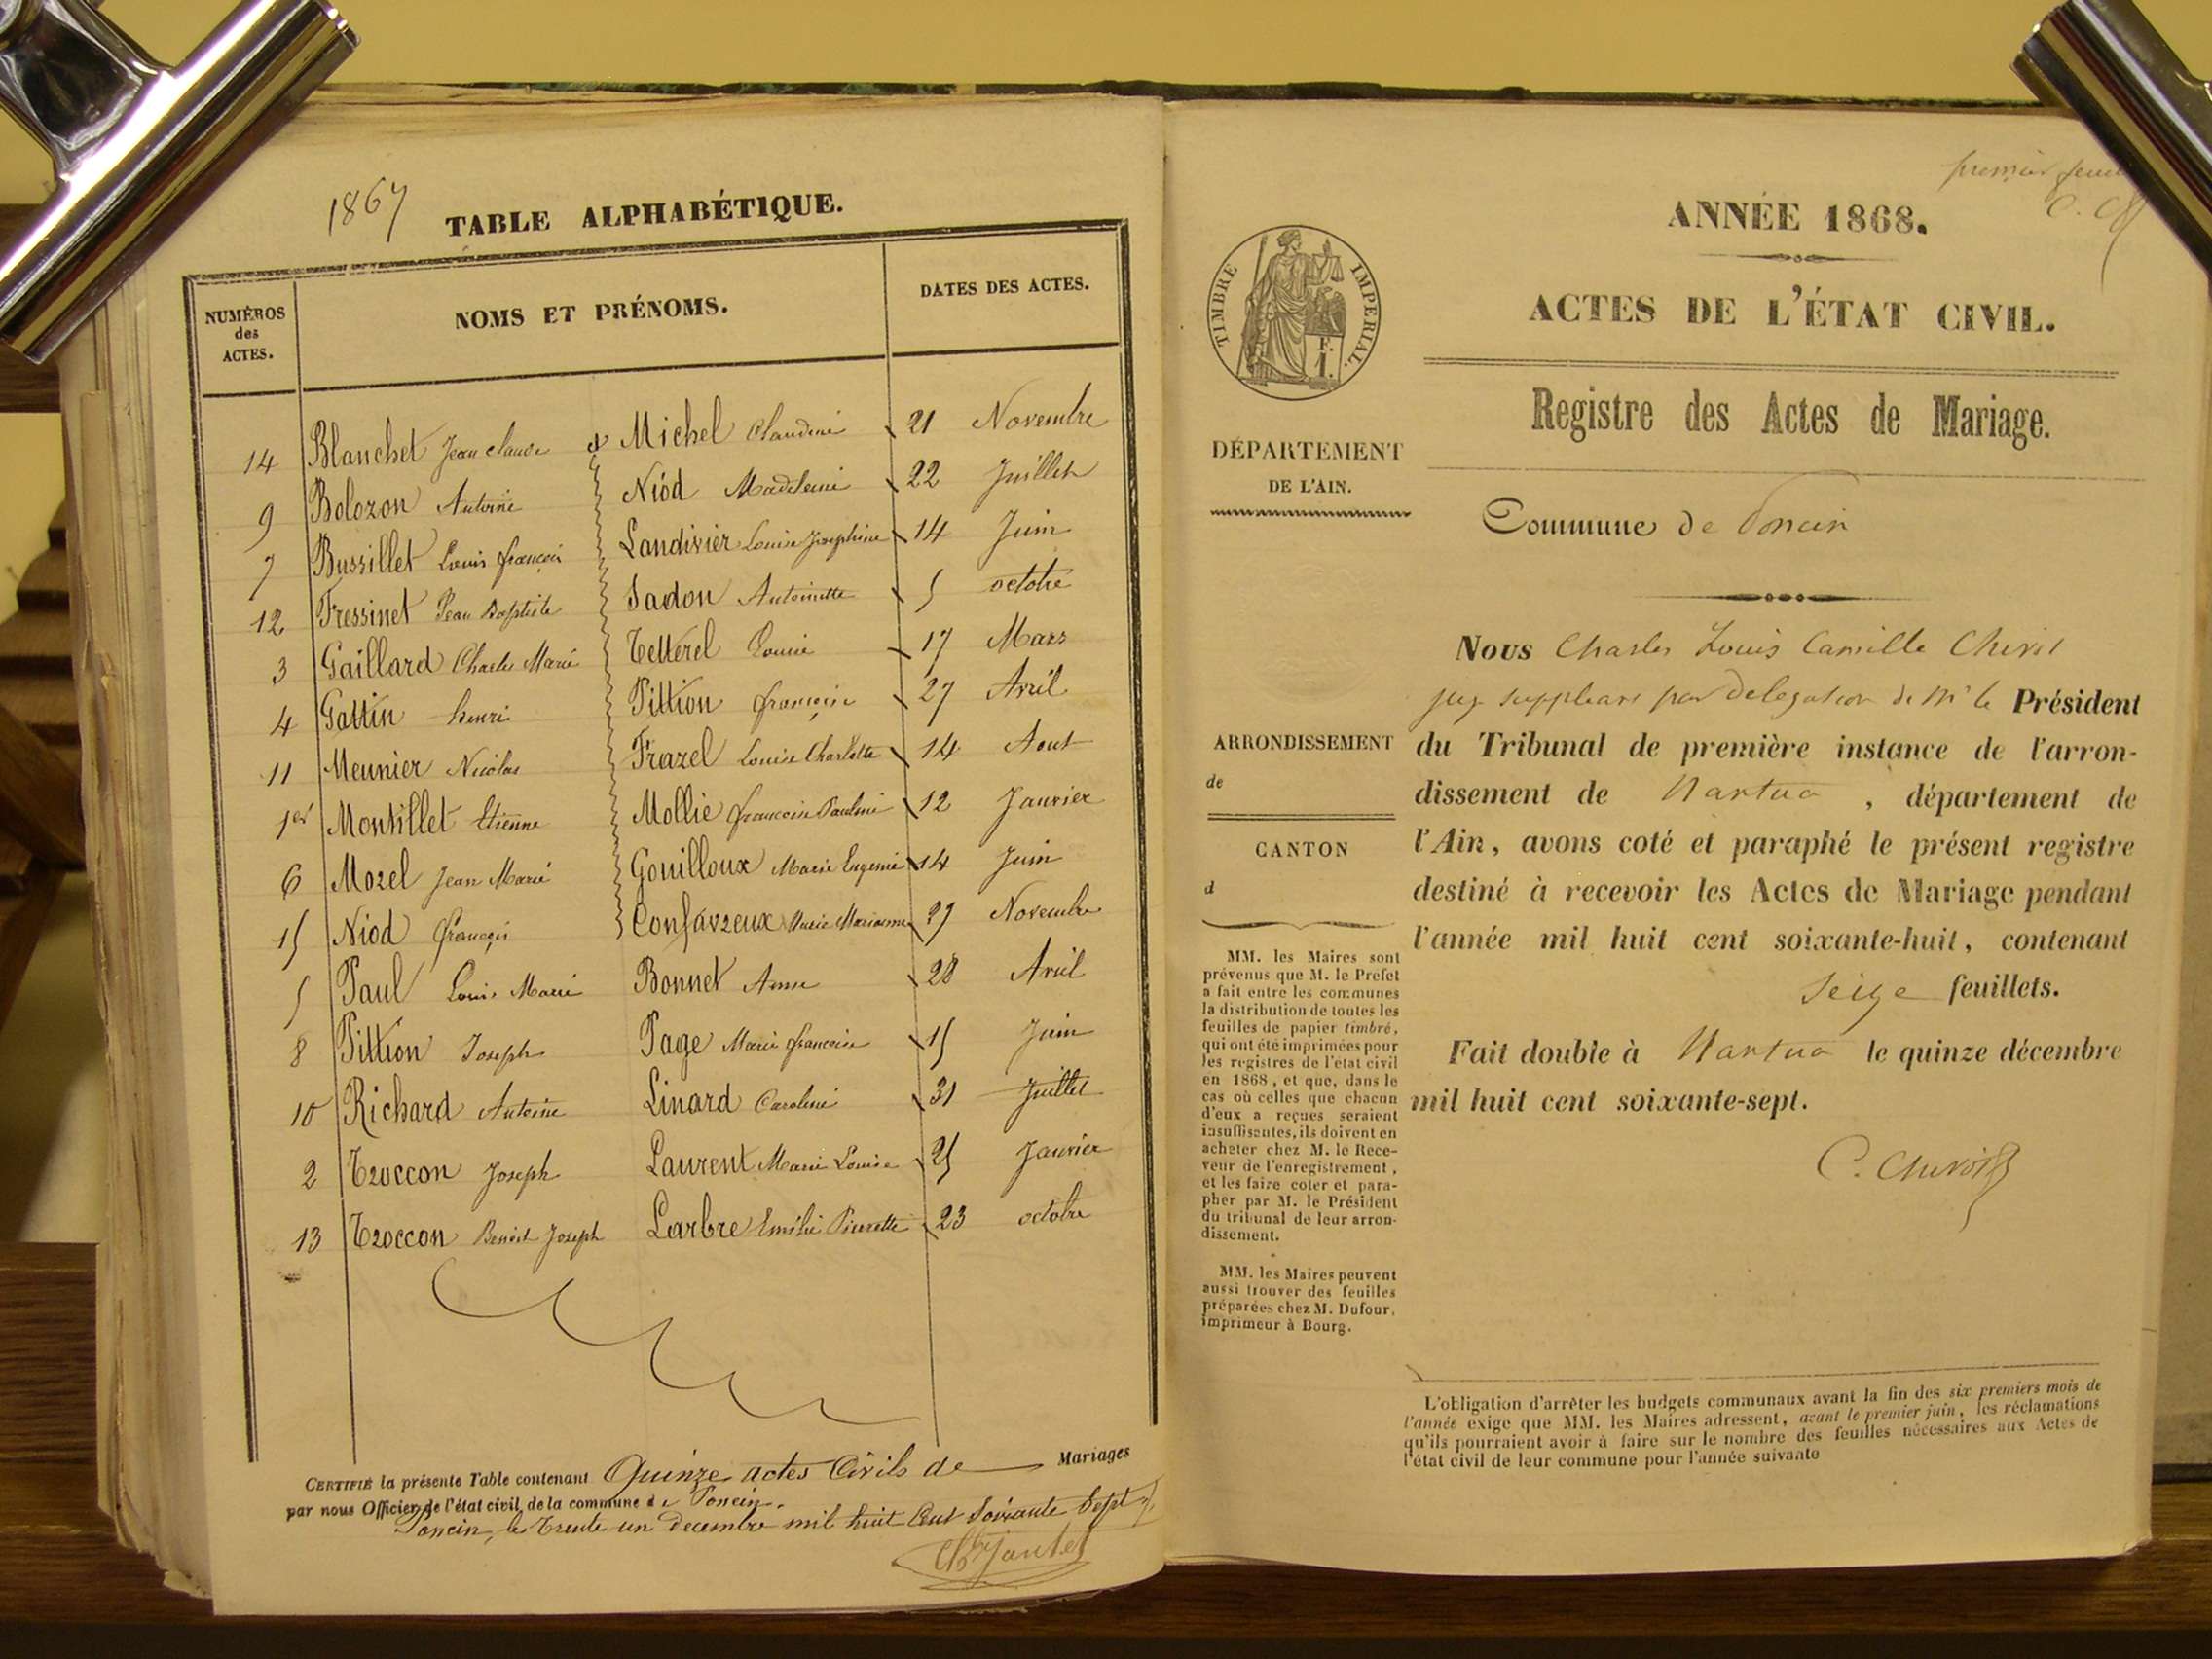 1867
TABLE ALPHABÉTIQUE.
NUMÉROS
des
ACTES.
NOMS ET PRÉNOMS.
DATES DES ACTES.
14 Blanchet Jean Claude & Michel Claudine 21 Novembre
9 Bolozon Antoine Niod Madeleine 22 Juillet
7 Bussillet Louis françois Landivier Louise Josephine 14 Juin
12 Fressinet Jean Baptiste Sadon Antoinette 5 octobre
3 Gaillard Charles Marie Tetterel Louise 17 Mars
4 Gottin henri Pittion françoise 27 Avril
11 Meunier Nicolas Frazel Louise Charlotte 14 Aout
1er Montillet Etienne Mollie françoise Pauline 12 Janvier
6 Morel Jean Marie Gouilloux Marie Eugenie 14 Juin
15 Niod françois Confavreux Marie Marianne 27 Novembre
5 Paul Louis Marie Bonnet Anne 28 Avril
8 Pittion Joseph Page Marie françoise 15 Juin
10 Richard Antoine Linard Caroline 31 Juillet
2 Troccon Joseph Laurent Marie Louise 25 Janvier
13 Troccon Benoit Joseph Larbre Emélie Pierrette 23 octobre
CERTIFIÉ la présente Table contenant Quinze actes Civils de Mariages
par nous Officier de l'état civil de la commune de Poncin.
Poncin, le trente un decembre mil huit Cent Soixante Sept
premier
C. Ch
ANNÉE 1868.
ACTES DE L'ÉTAT CIVIL.
TIMBRE IMPERIAL.
F.
1.
Registre des Actes de Mariage.
DÉPARTEMENT
DE L'AIN.
Commune de Poncin
Nous Charles Louis Camille Chevot
juge suppleant par delegation de Mr le Président
du Tribunal de première instance de l'arron-
dissement de Nantua , département de
l'Ain, avons coté et paraphé le présent registre
destiné à recevoir les Actes de Mariage pendant
l'année mil huit cent soixante-huit, contenant
Seize feuillets.
Fait double à Nantua le quinze décembre
mil huit cent soixante-sept.
ARRONDISSEMENT
de
CANTON
d
MM. les Maires sont
prévenus que M. le Prefet
a fait entre les communes
la distribution de toutes les
feuilles de papier timbré,
qui ont été imprimées pour
les registres de l'état civil
en 1868, et que, dans le
cas où celles que chacun
d'eux a reçues seraient
insuffisantes, ils doivent en
acheter chez M. le Rece-
veur de l'enregistrement,
et les faire coter et para-
pher par M. le Président
du tribunal de leur arron-
dissement.
MM. les Maires peuvent
aussi trouver des feuilles
préparées chez M. Dufour,
imprimeur à Bourg.
L'obligation d'arrêter les budgets communaux avant la fin des six premiers mois de
l'année exige que MM. les Maires adressent, avant le premier juin, les réclamations
qu'ils pourraient avoir à faire sur le nombre des feuilles nécessaires aux Actes de
l'état civil de leur commune pour l'année suivante